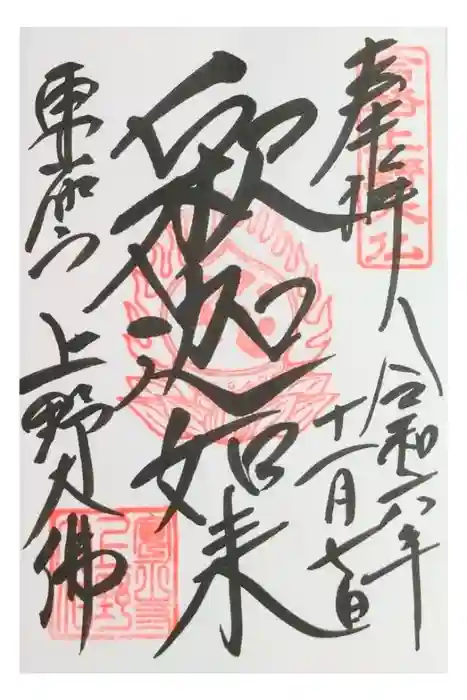 奉拝
令和六年
十一月七日
釈迦如来
東叡山
上野大佛